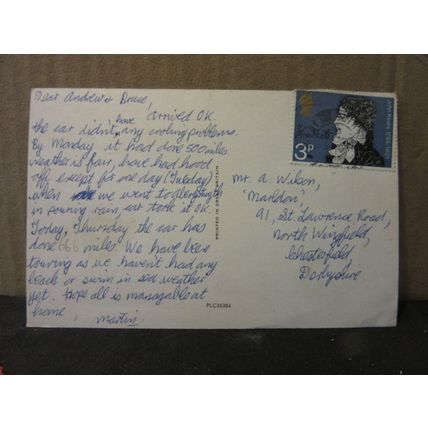 Dear Andrew &
have arrived O.K.
the car didn't any cooling problems.
By Monday it had done 500 miles.
weather is fair, have had hood
off except for one day (Tuesday)
when we went to
in pouring rain, car took it O.K.
Today, Thursday the car has
done 660 miles. We have been
touring as we haven't had any
beach or swim in sea weather
yet. Hope all is manageable at
home,
Martin.
PRINTED IN GREAT BRITAIN
PLC36384
John Keats 1795-1821
3P
Mr. A. Wilson,
'Marldon',
91, St. Lawrence Road,
North Wingfield,
Chesterfield,
Derbyshire